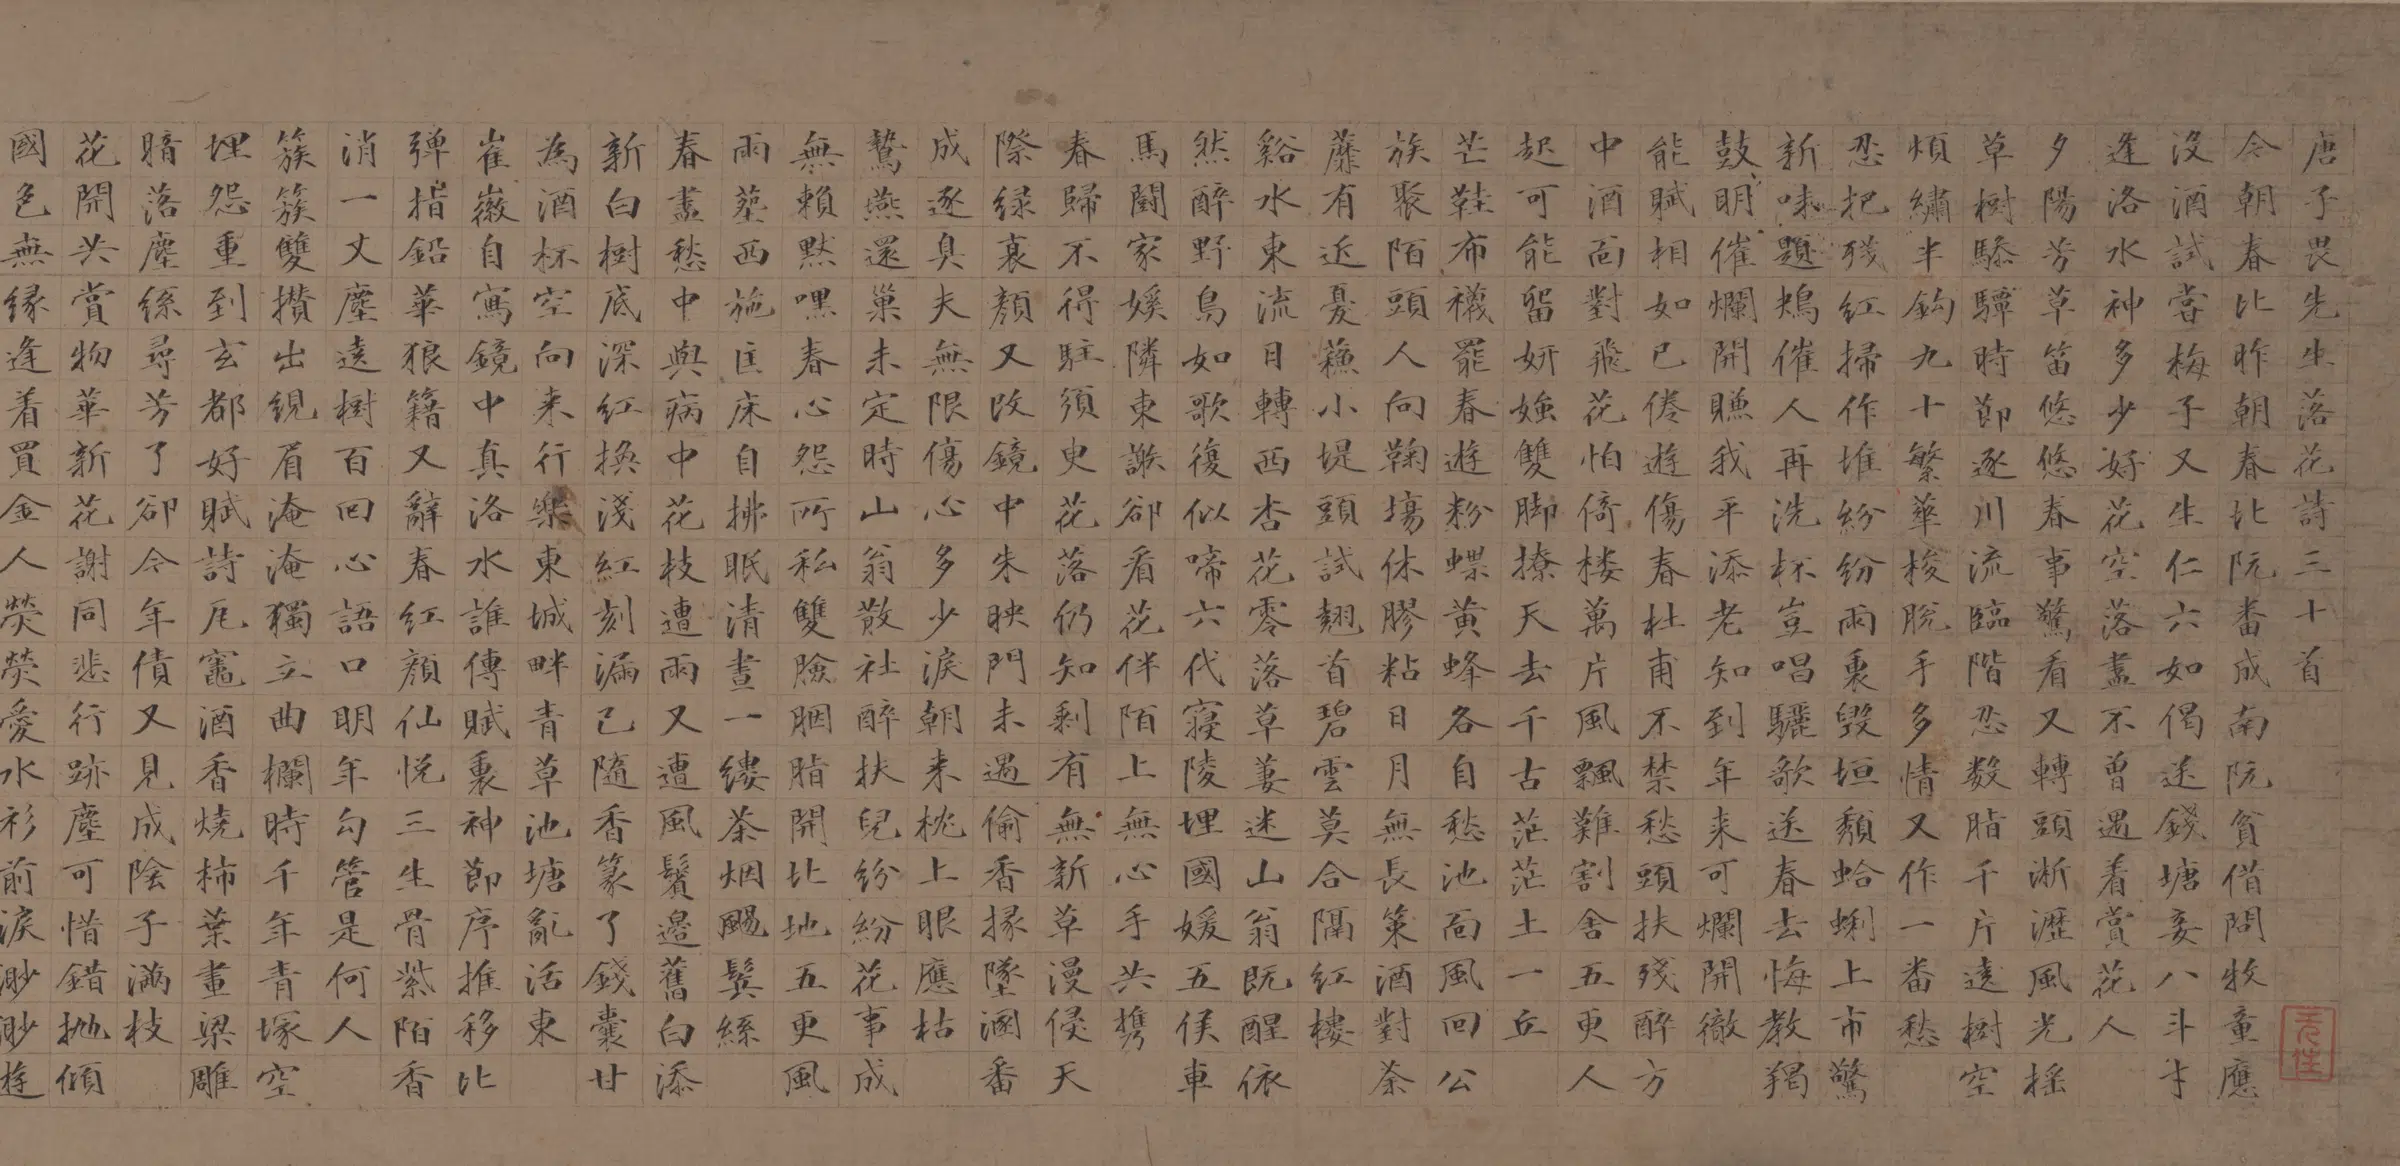 唐子畏先生落花詩三十首
今朝春比昨朝春北阮番成南阮貧借問牧童應
沒酒試嘗梅子又生仁六如偈送錢塘妾八斗才
逢洛水神多少好花空落盡不曾遇着賞花人
夕陽芳草笛悠悠春事驚看又轉頭淅瀝風光搖
草樹驂驔時節逐川流臨階忍數脂千片遶樹空
煩繡半鈎九十繁華梭脫手多情又作一番愁
忍把殘紅掃作堆紛紛雨裏毀垣頹蛤蜊上市驚
新味鶗鴂催人再洗杯豈唱驪歌送春去悔教羯
鼓明催爛開賺我平添老知到年來可爛開徹
能賦相如已倦遊傷春杜甫不禁愁頭扶殘醉方
中酒面對飛花怕倚樓萬片風飄難割舍五更人
起可能留妍媸雙脚撩天去千古茫茫土一丘
芒鞋布襪罷春遊粉蝶黃蜂各自愁池面風回公
族聚陌頭人向鞠場休膠粘日月無長策酒對荼
蘼有近憂蘓小堤頭試翹首碧雲莫合隔紅樓
谿水東流日轉西杏花零落草萋迷山翁既醒依
然醉野鳥如歌復似啼六代寢陵埋國媛五侯車
馬鬪家媛隣東謝卻看花伴陌上無心手共携
春歸不得駐須臾花落仍知剩有無新草漫侵天
際緑衰顏又改鏡中朱映門未遇偷香掾墜溷番
成逐臭夫無限傷心多少淚朝来枕上眼應枯
鶯燕還巢未定時山翁散社醉扶兒紛紛花事成
無賴黙嘿春心怨所私雙臉胭脂開北地五更風
雨葬西施匡床自拂眠清晝一縷茶烟颺鬢絲
春盡愁中與病中花枝遭雨又遭風鬢邊舊白添
新白樹底深紅換淺紅刻漏已隨香篆了錢囊甘
為酒杯空向来行樂東城畔青草池塘亂活東
崔徽自寫鏡中真洛水誰傳賦裏神節序推移比
弾指鉛華狼籍又辭春紅顏仙悅三生骨紫陌香
消一丈塵遶樹百回心語口明年勾管是何人
簇簇雙攢出繭眉淹淹獨立曲欄時千年青塚空
埋怨重到玄都好賦詩厇竈酒香燒柿葉畫梁雕
暗落塵絲尋芳了卻今年債又見成陰子滿枝
花開共賞物華新花謝同悲行跡塵可惜錯抛傾
國色無緣逢着買金人熒熒愛水衫前淚渺渺遊